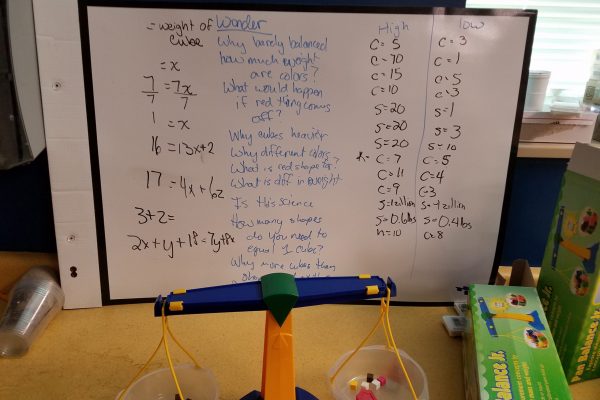 = weight of
cube
= x
7 = 7x
7 7
1 = x
16 = 13x+2
17 = 4x + 6z
3+2=
2x + y + 18 = 7y+8x
Wonder
Why barely balanced
how much weight
are colors?
What would happen
if red thing comes
off?
Why cubes heavier
Why different colors
What is red shape for?
What is diff in weight
Is this science
How many shapes
do you need to
equal 1 cube?
Why more cubes than
High
C = 5
C = 70
C = 15
C = 10
S = 20
S = 20
S = 20
C = 7
C = 11
C = 9
S = 1zillion
S = 0.6lbs
n = 10
low
C = 3
C = 1
C = 5
C = 3
S = 1
S = 3
S = 10
C = 5
C = 4
C = 3
S = 1zillion
S = 0.4lbs
C = 8
Pan Balance Jr.
Balance Jr.